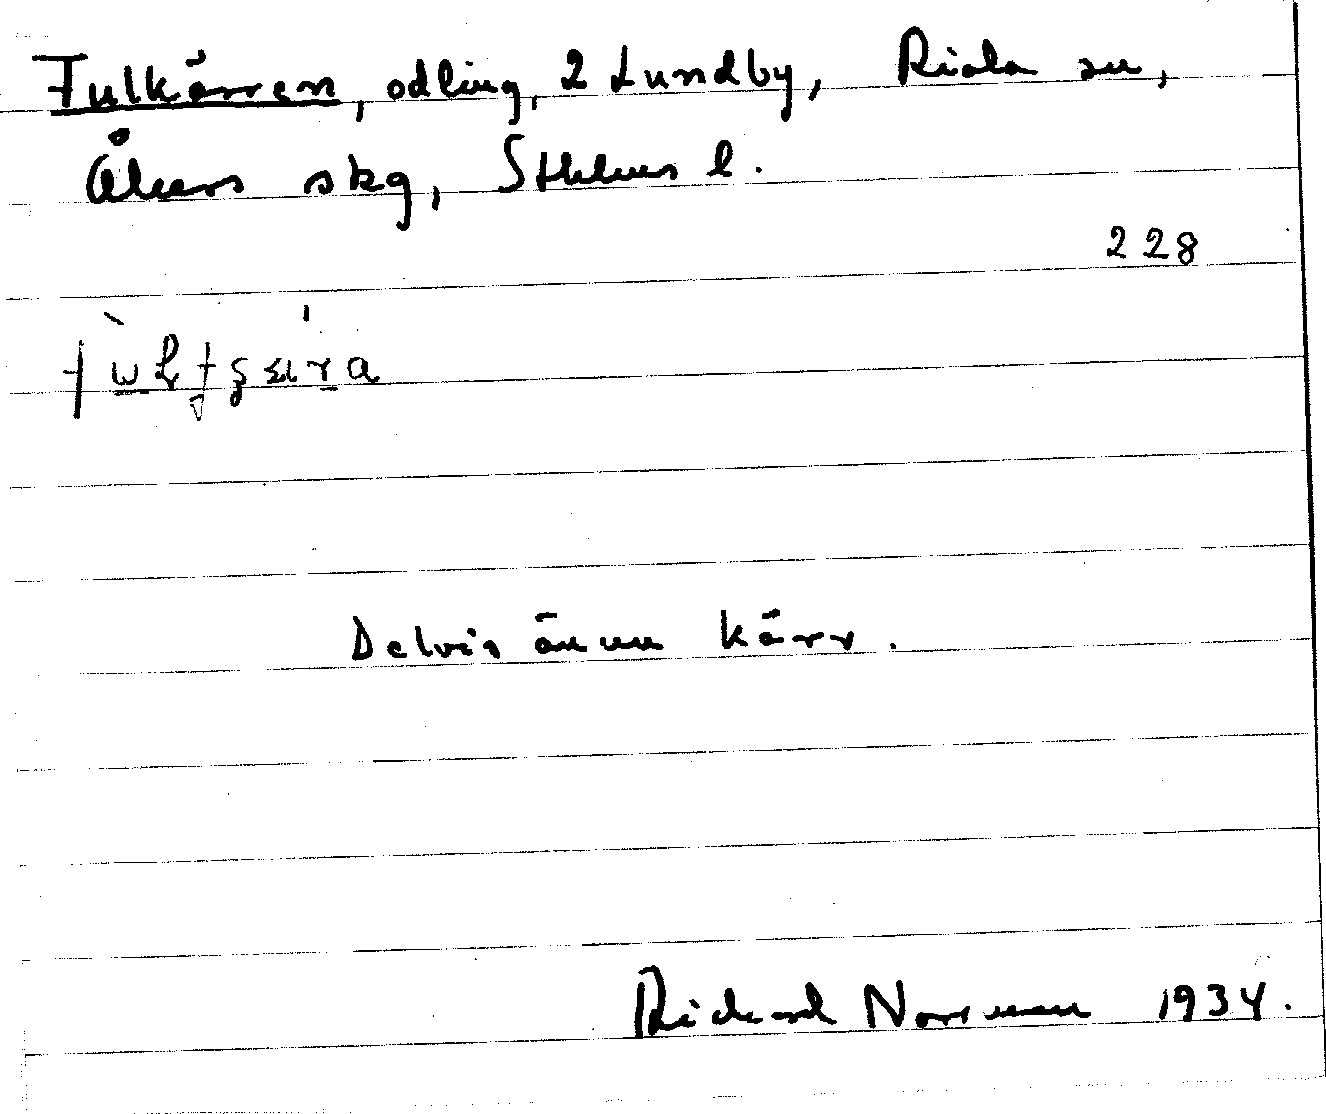 Fulkärren, odling, 2 Lundby, Riala sn,
Åkers skg, Sthlms l.
228
Delvis ännu kärr.
Rickard Norrman 1934.